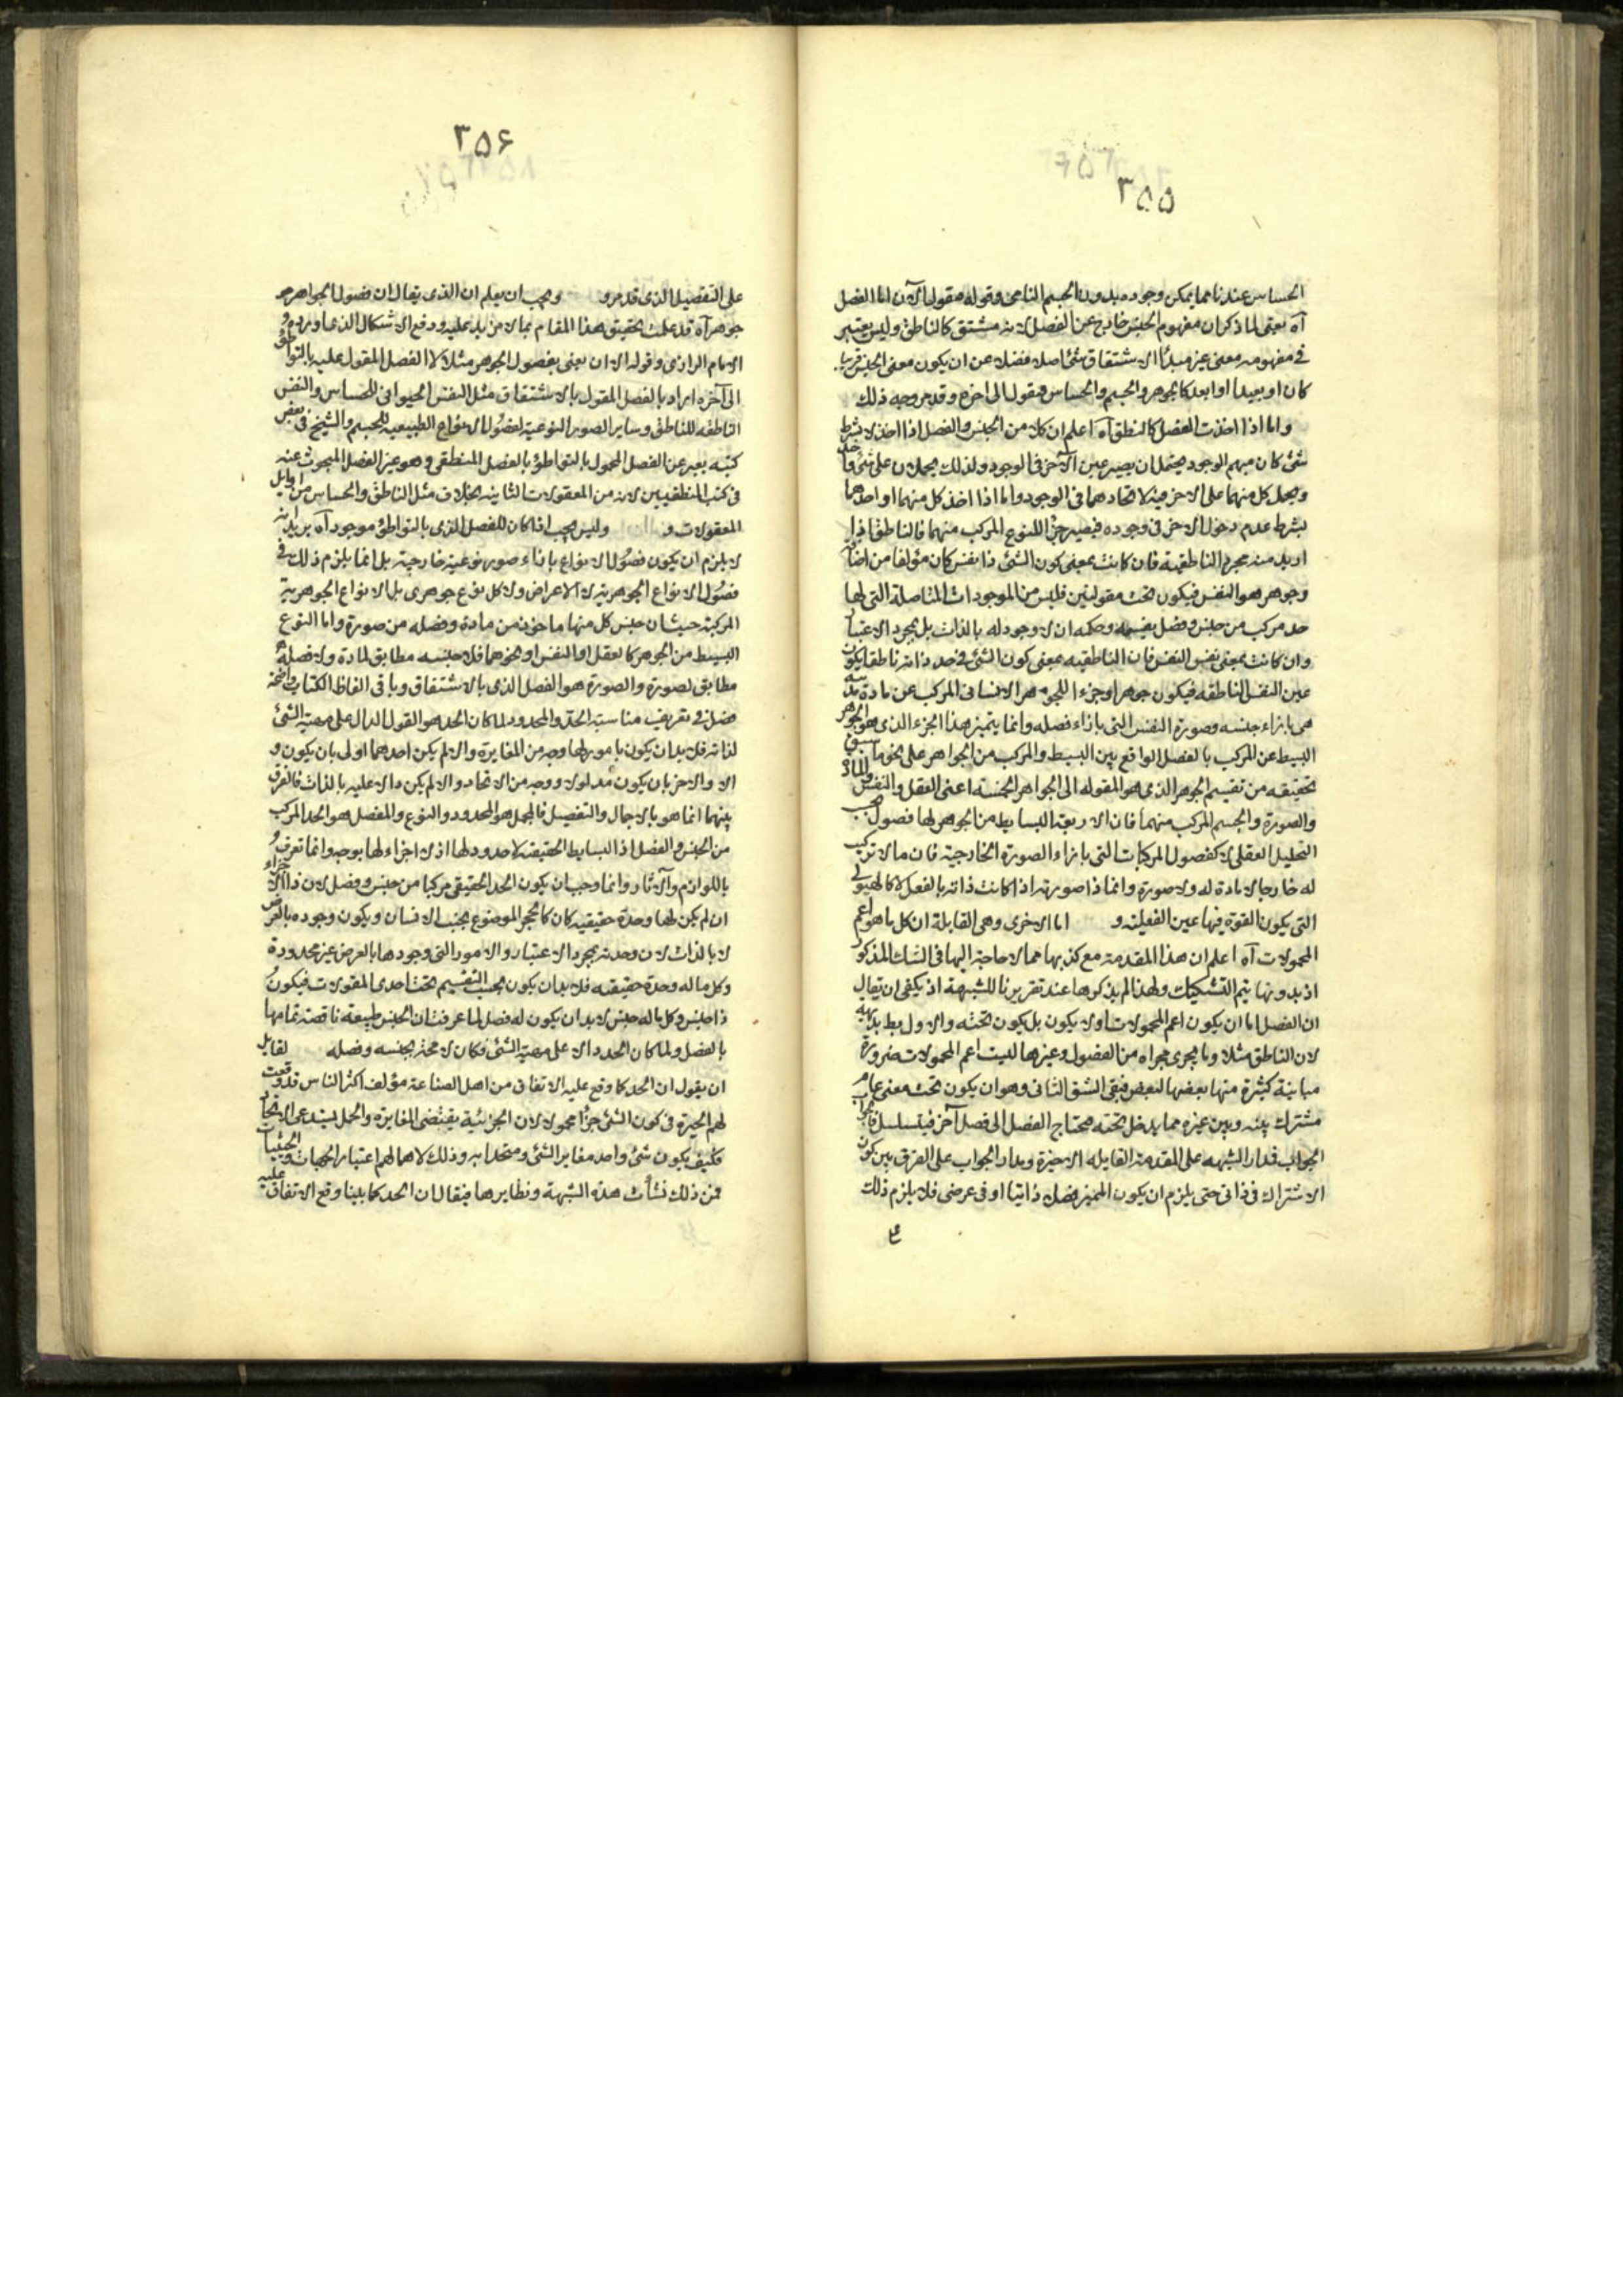 ٣٥٥
الحساس عندنا مما يمكن وجوده بدون الجسم النامى وقوله فنقول الآن اما الفصل
آه يعنى لما ذكر ان مفهوم الجنس خارج عن الفصل لانه مشتق كالناطق وليس يعتبر
فى مفهومه معنى غير مبدأ الاشتقاق شئ اصلا فضلا عن ان يكون معنى الجنس قريبا
كان او بعيدا او ابعد كالجوهر والجسم والحساس فنقول الى اخره وقد مر وجه ذلك
واما اذا اخذت الفصل كالنطق آه اعلم ان كلا من الجنس والفصل اذا اخذ لا بشرط
شئ كان مبهم الوجود يحتمل ان يصير عين الآخر فى الوجود ولذلك يحملان على شئ واحد
ويحمل كل منهما على الاخر فيه لاتحادهما فى الوجود واما اذا اخذ كل منهما او احدهما
بشرط عدم دخول الاخر فى وجوده فيصير جزأ للنوع المركب منهما فالناطق اذا
اريد منه مجرد الناطقية فان كانت بمعنى كون الشئ ذا نفس كان مؤلفا من اضافة
وجوهر هو النفس فيكون تحت مقولتين فليس من الموجودات المتاصلة التى لها
حد مركب من جنس وفصل بقسمه وحكمه ان لا وجود له بالذات بل بمجرد الاعتبار
وان كانت بمعنى نفس النفس فان الناطقيه بمعنى كون الشئ فى حد ذاته ناطقا يكون
عين النفس الناطقه فيكون جوهرا وجزءا للجوهر الانسانى المركب عن مادة بدنية
هى بازاء جنسه وصورة النفس التى بازاء فصله وانما يتميز هذا الجزء الذى هو الجوهر
البسيط عن المركب بالفصل الواقع بين البسيط والمركب من الجواهر على نحو ما سبق
تحقيقه من تقسيم الجوهر الذى هو المقوله الى الجواهر الخمسة اعنى العقل والنفس والمادة
والصورة والجسم المركب منهما فان الاربعة البسايط من الجوهر لها فصول بحسب
التحليل العقلى لا كفصول المركبات التى بازاء الصورة الخارجية فان ما لا تركيب
له خارجا لا مادة له ولا صورة وانما ذا صورته اذا كانت ذاته بالفعل لا كالهيولى
التى يكون القوة فيها عين الفعلية و اما الاخرى وهى القابلة ان كل ما هو اعم
المحمولات آه اعلم ان هذا المقدمة مع كذبها مما لا حاجة اليها فى الشك المذكور
اذ بدونها يتم التشكيك ولهذا لم يذكرها عند تقريرنا للشبهة اذ يكفى ان يقال
ان الفصل اما ان يكون اعم المحمولات او لا يكون بل يكون تحته والاول بط بديهة
لان الناطق مثلا وما يجرى مجراه من الفصول وغيرها ليست اعم المحمولات ضرورة
مباينة كثيرة منها بعضها لبعض فبقى الشق الثانى وهو ان يكون تحت معنى عام
مشترك بينه وبين غيره مما يدخل تحته فيحتاج الفصل الى فصل آخر فيتسلسل فالجواب
الجواب فمدار الشبهه على المقدمة القايله الاخيرة ومدار الجواب على الفرق بين كون
الاشتراك فى ذاتى حتى يلزم ان يكون المميز فصلا ذاتيا او فى عرضى فلا يلزم ذلك
٣٥۶
على التفصيل الذى قد مر و ويجب ان يعلم ان الذى يقال ان فصول الجواهر هو
جوهر آه قد علمت تحقيق هذا المقام بما لا مزيد عليه ودفع الاشكال الذى اورده
الامام الرازى وقوله الا ان يعنى بفصول الجوهر مثلا لا الفصل المقول عليه بالتواطؤ
الى آخره اراد بالفصل المقول بالاشتقاق مثل النفس الحيوانى للحساس والنفس
الناطقه للناطق وساير الصور النوعية لفصول الانواع الطبيعيه للجسم والشيخ فى بعض
كتبه يعبر عن الفصل المحمول بالتواطؤ بالفصل المنطقى وهو غير الفصل المبحوث عنه
فى كتب المنطقيين لانه من المعقولات الثانية بخلاف مثل الناطق والحساس من اوايل
المعقولات و وليس يجب اذا كان للفصل الذى بالتواطؤ موجود آه يريد انه
لا يلزم ان يكون فصول الانواع بازاء صور نوعية خارجية بل انما يلزم ذلك فى
فصول الانواع الجوهرية لا الاعراض ولا كل نوع جوهرى بل الانواع الجوهرية
المركبة حيث ان جنس كل منها ماخوذ من مادة وفصله من صورة واما النوع
البسيط من الجوهر كالعقل او النفس او نحوهما فلا جنسه مطابق لمادة ولا فصله
مطابق لصورة والصورة هو الفصل الذى بالاشتقاق وباقى الفاظ الكتاب واضحة
فصل فى تعريف مناسبة الحد والمحدود لما كان الحد هو القول الدال على مهية الشئ
لذاته فلا بد ان يكون بامور لها وجه من المغايرة والا لم يكن احدهما اولى بان يكون و
الا والاخر بان يكون مدلولا ووجه من الاتحاد والا لم يكن دالا عليه بالذات فالفرق
بينهما انما هو بالاجمال والتفصيل فالمجمل هو المحدود والنوع والمفصل هو الحد المركب
من الجنس والفصل اذ البسايط الحقيقة لا حدود لها اذ لا اجزاء لها بوجه وانما تعرف
باللوازم والآثار وانما وجب ان يكون الحد الحقيقى مركبا من جنس وفصل لان ذا الاجزاء
ان لم يكن لها وحدة حقيقيه كان كالحجر الموضوع بجنب الانسان ويكون وجوده بالعرض
لا بالذات لان وحدته بمجرد الاعتبار والامور التى وجودها بالعرض غير محدودة
وكل ما له وحدة حقيقه فلا بد ان يكون بحسب التقسيم تحت احدى المقولات فيكون
ذا جنس وكل ما له جنس لا بد ان يكون له فصل لما عرفت ان الجنس طبيعة ناقصة تمامها
بالفصل ولما كان الحد دالا على مهية الشئ فكان لا محة بجنسه وفصله لقايل
ان يقول ان الحد كما وقع عليه الاتفاق من اهل الصناعة مؤلف اكثر الناس قد وقعت
لهم الحيرة فى كون الشئ جزأ محمولا لان الجزئية يقتضى المغايرة والحمل يستدعى الاتحاد
فكيف يكون شئ واحد مغاير الشئ ومتحدا به وذلك لاهمالهم اعتبار الجهات والحيثيات
فمن ذلك نشأت هذه الشبهة ونظايرها فيقال ان الحد كما بينا وقع الاتفاق عليه